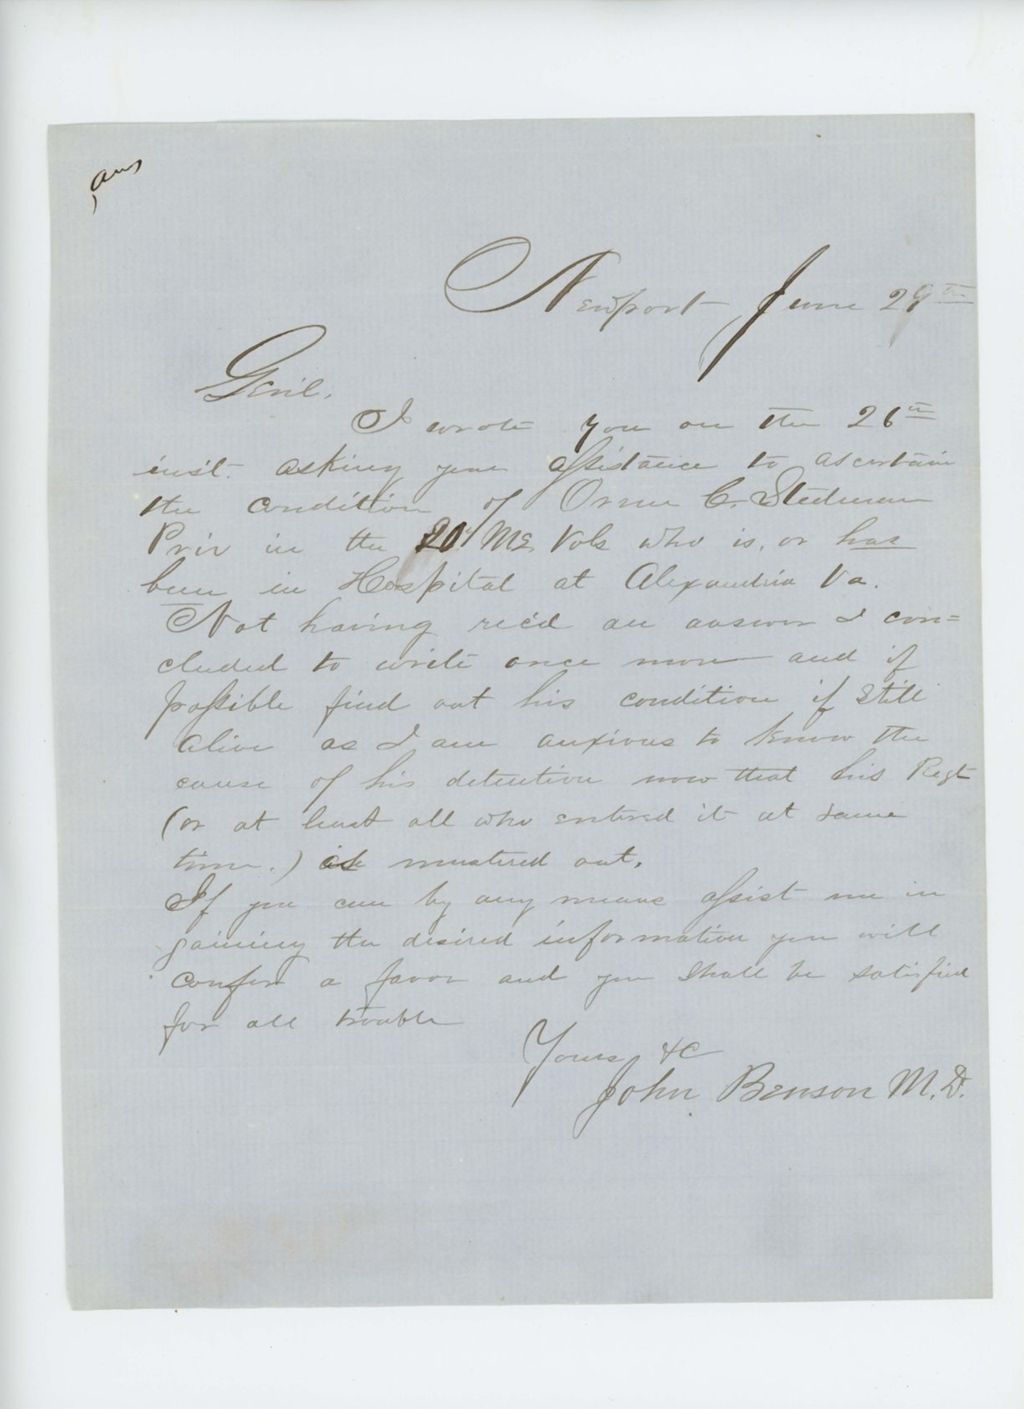 ans
Newport June 29th
Genl.
I wrote you on the 26th
inst. asking your assistance to ascertain
the condition of Orrin C. Stedman
Priv in the 20th ME. Vols who is, or has
been in Hospital at Alexandria Va.
Not having rec'd an answer I con=
cluded to write once more and if
possible find out his condition if still
alive as I am anxious to know the
cause of his detention now that his Regt
(or at least all who entered it at same
time.) is mustered out.
If you can by any means assist me in
gaining the desired information you will
confer a favor and you shall be satisfied
for all trouble
Yours &C
John Benson M.D.